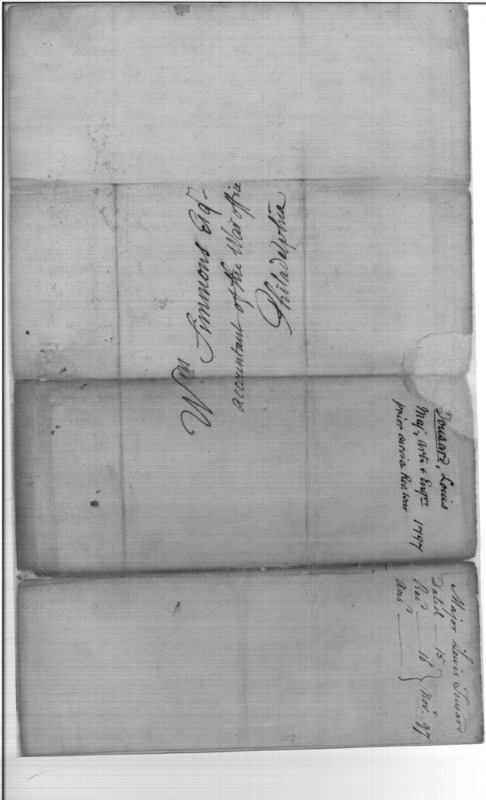 Wm Simmons Esqr
accountant of the War office
Philadelphia
Tousard, Louis
Maj. Arts & Engrs 1797
prior service
Major Lewis Tousard
Dated — 15
Recd — 16 } Novr. 97
Ansd —